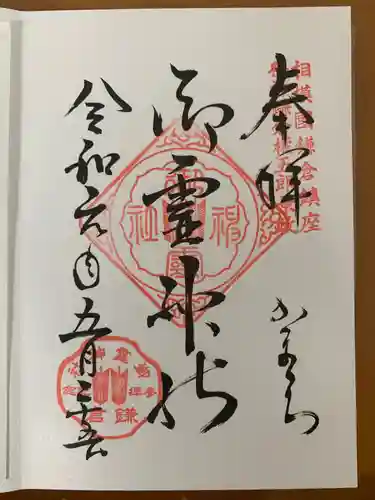 奉拝
かまくら
相模國鎌倉鎮座
御霊神社
御霊神社
令和六年五月二十五日
鎌倉